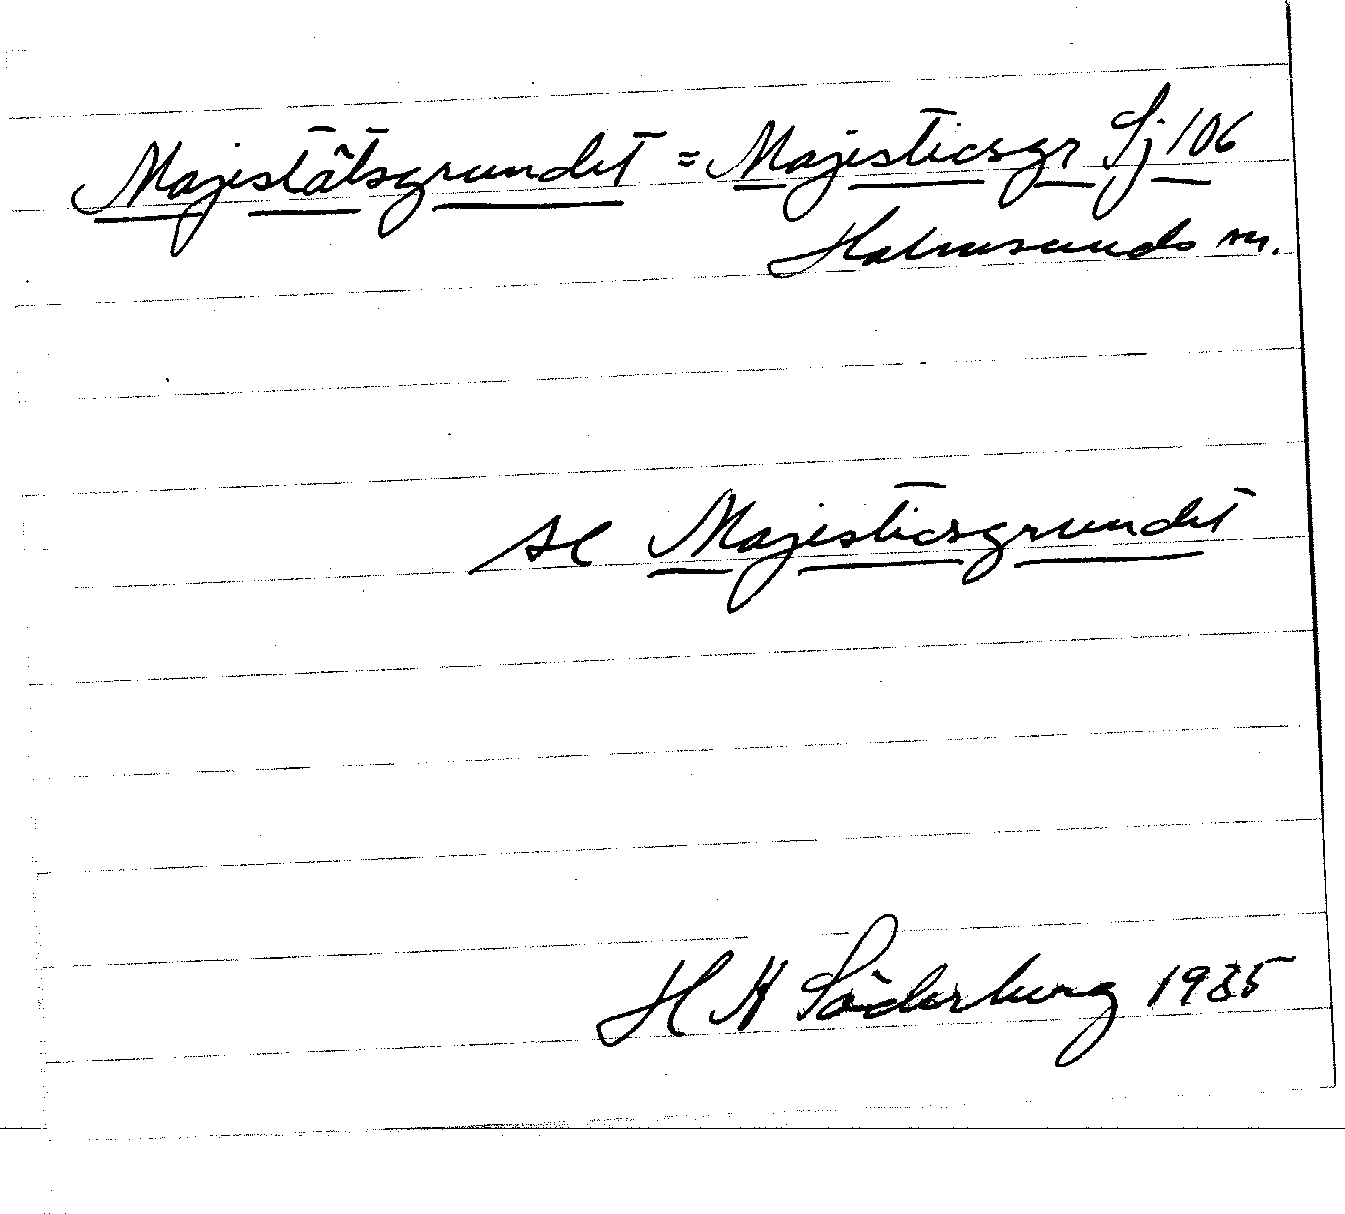 Majestätsgrundet = Majesticsgr Sj 106
Holmsunds sn.
se Majesticsgrundet
H K Söderberg 1935